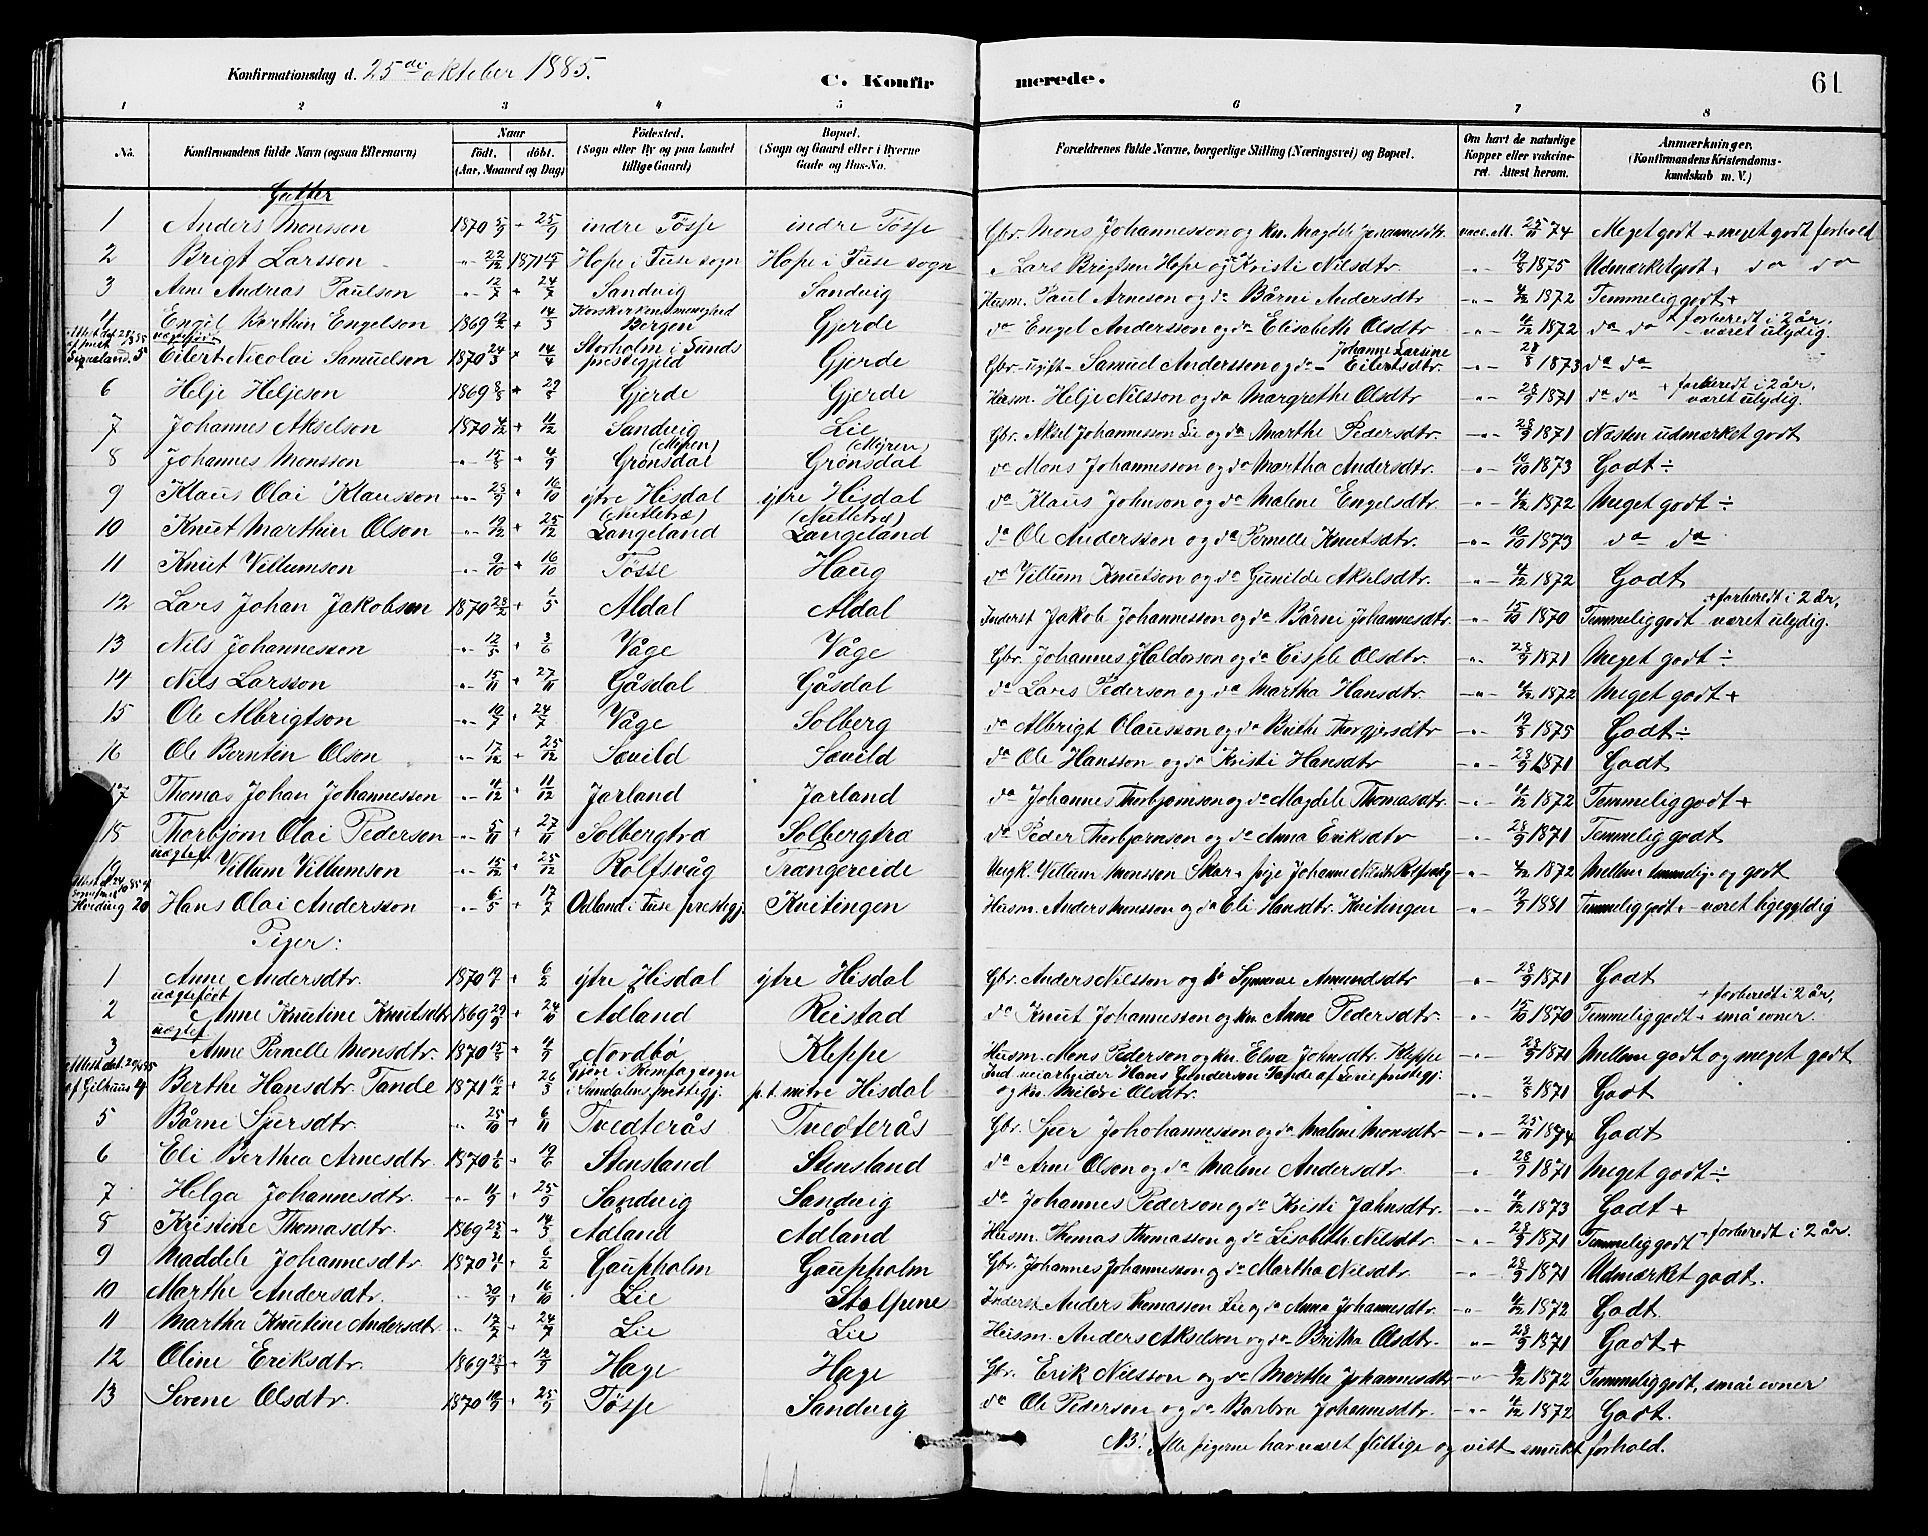 Konfirmationsdag d. 25de oktober 1885.
C. Konfir merede. 61
1 2 3 4 5 6 7 8
No. Konfirmandens fulde Navn (ogsaa Efternavn) Naar født. døbt. (Aar, Maaned og Dag) Fødested. (Sogn eller By og paa Landet tillige Gaard) Bopæl. (Sogn og Gaard eller i Byerne Gade og Hus-No. Forældrenes fulde Navne, borgerlige Stilling (Næringsvei) og Bopæl. Om havt de naturlige Kopper eller vakcineret. Attest herom. Anmærkninger. (Konfirmandens Kristendomskundskab m. V.)
Gutter
1 Anders Monsson 1870 5/9 + 25/9 indre Tösse indre Tösse Gbr. Mons Johannesson og kn. Magdele Johannesdtr. vacc. M. 25/11 74 Meget godt + meget godt forhold
2 Brigt Larsson 22/12 1871 Hope i Fuse sogn Hope i Fuse sogn Lars Brigtsen Hope og Kristi Nilsdtr 19/8 1875 Udmærketgodt. do do
3 Arne Andreas Paulson 12/7 + 24/7 Sandvig Sandvig Husm. Paul Arneson og do Bårni Andersdtr 4/12 1872 Temmelig godt +
4 Engel Korthin Engelson 1869 12/2 + 14/3 Korskirkens menighed Bergen Gjerde do Engel Andersson og do Elisabeth Olsdtr 4/12 1872 do do + forberedt i 2 år, været ulydig.
5 uægtefödt Eilert Nicolai Samuelson 1870 24/3 + 14/4 Storholm i Sunds prestegjeld Gjerde Gbr. ugift Samuel Andersson og do Johanne Larsine Eilertsdtr. 28/8 1873 do do
6 Helje Heljeson 1869 8/8 + 29/8 Gjerde Gjerde Husm. Helje Nilsson og do Margrethe Olsdtr 1871 do do + forberedt i 2 år, været ulydig.
7 Johannes Akselson 1870 4/12 + 11/12 Sandvig Lie Gbr. Aksel Johannesson Lie og do Marthe Pedersdtr. 28/9 1871 Næsten udmærket godt
8 Johannes Monsson 15/8 + 4/9 (Myren) Grönsdal (Myren) Grönsdal do Mons Johannesson og do Martha Andersdtr. 19/10 1873 Godt ÷
9 Klaus Olai Klausson 25/9 + 16/10 ytre Hisdal ytre Hisdal do Klaus Johnson og do Malene Engelsdtr 4/12 1872 Meget godt ÷
10 Knut Marthin Olson 12/12 + 25/12 (Nutletræ) Langeland (Nutletræ) Langeland do Ole Andersson og do Pernelle Knutsdtr. 19/10 1873 do do
11 Knut Villumson 9/10 + 16/10 Tösse Haug do Villum Knutson og do Gunilde Akselsdtr. 4/12 1872 Godt
12 Lars Johan Jakobson 1870 28/2 + 1/5 Aldal Aldal Inderst Jakob Johannesson og do Bårni Johannesdtr. 15/10 1870 Temmelig godt + forberedt i 2 år, været ulydig.
13 Nils Johannesson 12/5 + 3/6 Våge Våge Gbr. Johannes Haldorson og do Cissele Olsdtr. 28/9 1871 Meget godt ÷
14 Nils Larsson 15/11 + 27/11 Gåsdal Gåsdal do Lars Pederson og do Martha Hansdtr. 4/12 1872 Meget godt +
15 Ole Albrigtson 10/7 + 24/7 Våge Solberg do Albrigt Olausson og do Brithe Thorgjersdtr 19/8 1875 Godt ÷
16 Ole Berntin Olson 17/12 + 25/12 Sævild Sævild do Ole Hansson og do Kristi Hansdtr 28/9 1871 Godt
17 Thomas Johan Johannesson 4/12 + 11/12 Jarland Jarland do Johannes Thorbjørnson og do Magdele Thomasdtr. 4/12 1872 Temmelig godt +
18 Thorbjørn Olai Pederson 5/11 + 27/11 Solbergtræ Solbergtræ do Peder Thorbjørnson og do Anna Eriksdtr 28/9 1871 Temmelig godt
19 uægtef. Villum Villumson 15/12 + 25/12 Rolfsvåg Trangereide Ungk. Villum Monsson Skar + pige Johanne Nilsdtr Rolfsvåg 4/12 1872 Mellem temmelig og godt
20 Hans Olai Andersson 6/5 + 17/7 Ådland i Fuse prestegj. Kvitingen Husm. Anders Monsson og do Eli Hansdtr. Kvitingen 19/9 1881 Temmelig godt. været ligegyldig
Piger:
1 Anne Andersdtr. 1870 + 6/2 ytre Hisdal ytre Hisdal Gbr. Anders Nilsson og do Synneve Amundsdtr 28/9 1871 Godt
2 uægtefödt Anne Knutine Knutsdtr 1869 29/9 + 24/10 Ådland Reistad do Knut Johannesson og kn. Anne Pedersdtr. 15/10 1870 Temmelig godt + forberedt i 2 år, små evner.
3 uægtef Anne Pernelle Monsdtr. 1870 15/8 + 4/9 Nordbö Kleppe Husm. Mons Pederson og kn. Elna Johnsdtr. Kleppe 28/9 1871 Mellem godt og meget godt
4 Berthe Hansdtr. Tande 1871 16/2 + 26/3 Gjöre i Romfog sogn i Sundalens prestegj. p.t. mitre Hisdal Ind. veiarbeider Hans Gunderson Tande af prestegj. og kn. Mildri Olsdtr. 1871 Godt
5 Bårne Sjursdtr. 25/10 + 6/11 Tvedterås Tvedterås Gbr. Sjur Johohannesson og do Malene Monsdtr 25/11 1874 Godt
6 Eli Berthea Arnesdtr. 1870 1/6 + 19/6 Stensland Stensland do Arne Olson og do Malene Andersdtr. 28/9 1871 Meget godt ÷
7 Helga Johannesdtr. 11/9 + 25/9 Sandvig Sandvig do Johannes Pederson og do Kristi Jahnsdtr. 4/12 1873 Godt +
8 Kristine Thomasdtr. 1869 25/2 + 14/3 Ådland Ådland Husm. Thomas Thomasson og do Lisabeth Nilsdtr 28/9 1871 Temmelig godt forberedt i 2 år.
9 Maddele Johannesdtr. 1870 + 6/2 Gaupholm Gaupholm Gbr. Johannes Johannesson og do Martha Nilsdtr. 28/9 1871 Udmærket godt.
10 Marthe Andersdtr. 30/9 + 16/10 Lie Stolpene Inderst Anders Thomasson Lie og do Anna Johannesdtr. 4/12 1872 Godt.
11 Martha Knutine Andersdtr. 17/7 + 24/7 Lie Lie Husm. Anders Akselson og do Britha Olsdtr. 28/9 1871 Godt +
12 Oline Eriksdtr. 1869 25/8 + 12/9 Hage Hage Gbr. Erik Nilsson og do Marthe Johannesdtr 4/12 1872 Temmelig godt, små evner
13 Sorene Olsdtr. 1870 10/9 + 25/9 Tösse Sandvig do Ole Pederson og do Barbra Johannesdtr. 4/12 1872 Godt.
NB! Alle pigerne har været flittige og vist smukt forhold.